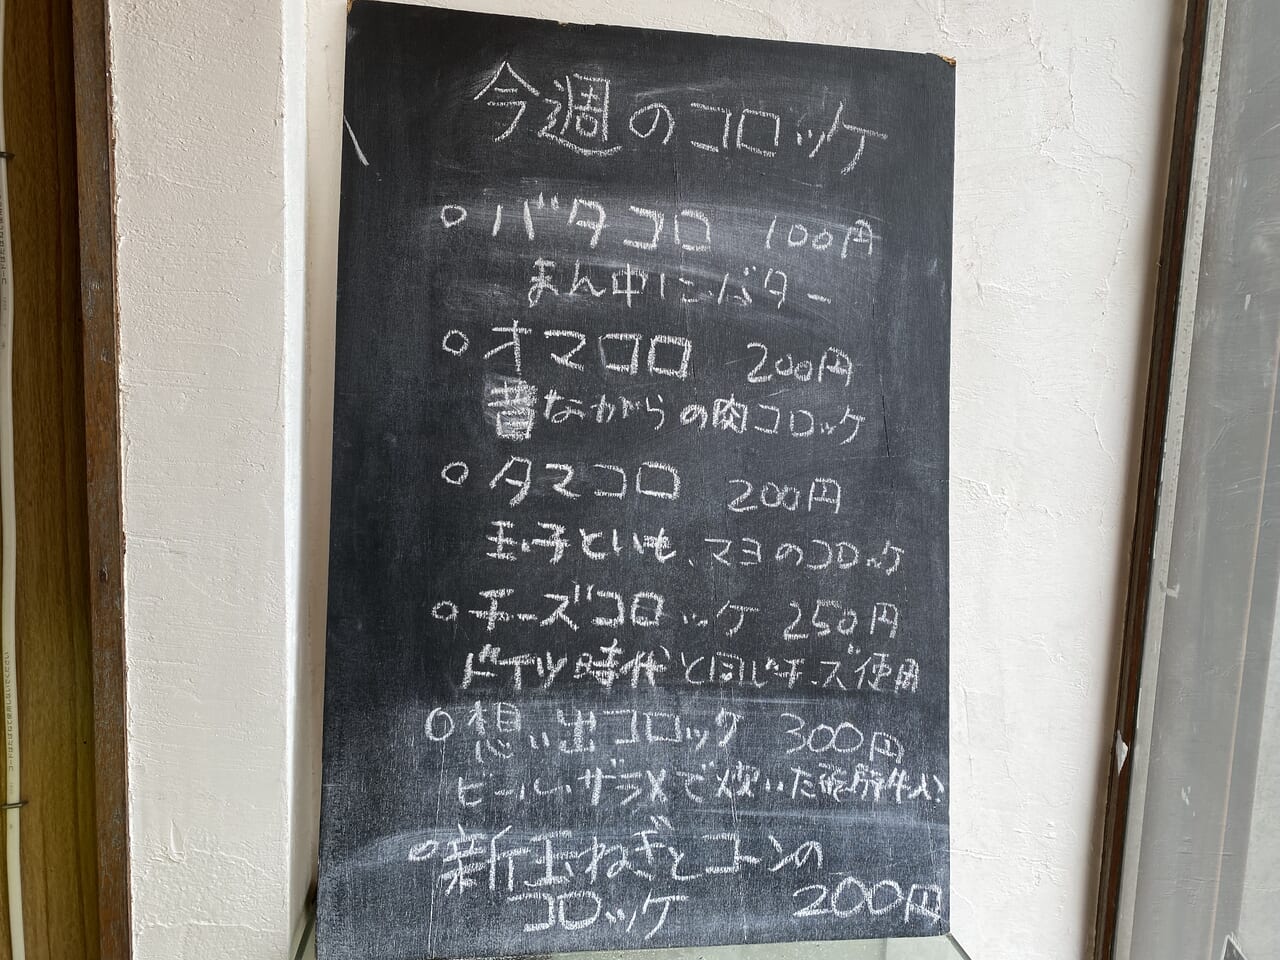 今週のコロッケ
○バタコロ 100円
まん中にバター
○オマコロ 200円
昔ながらの肉コロッケ
○タマコロ 200円
玉子といも、マヨのコロッケ
○チーズコロッケ 250円
ドイツ時代と同じチーズ使用
○想い出コロッケ 300円
ビール、ザラメで炊いた
○新玉ねぎとコーンの
コロッケ 200円